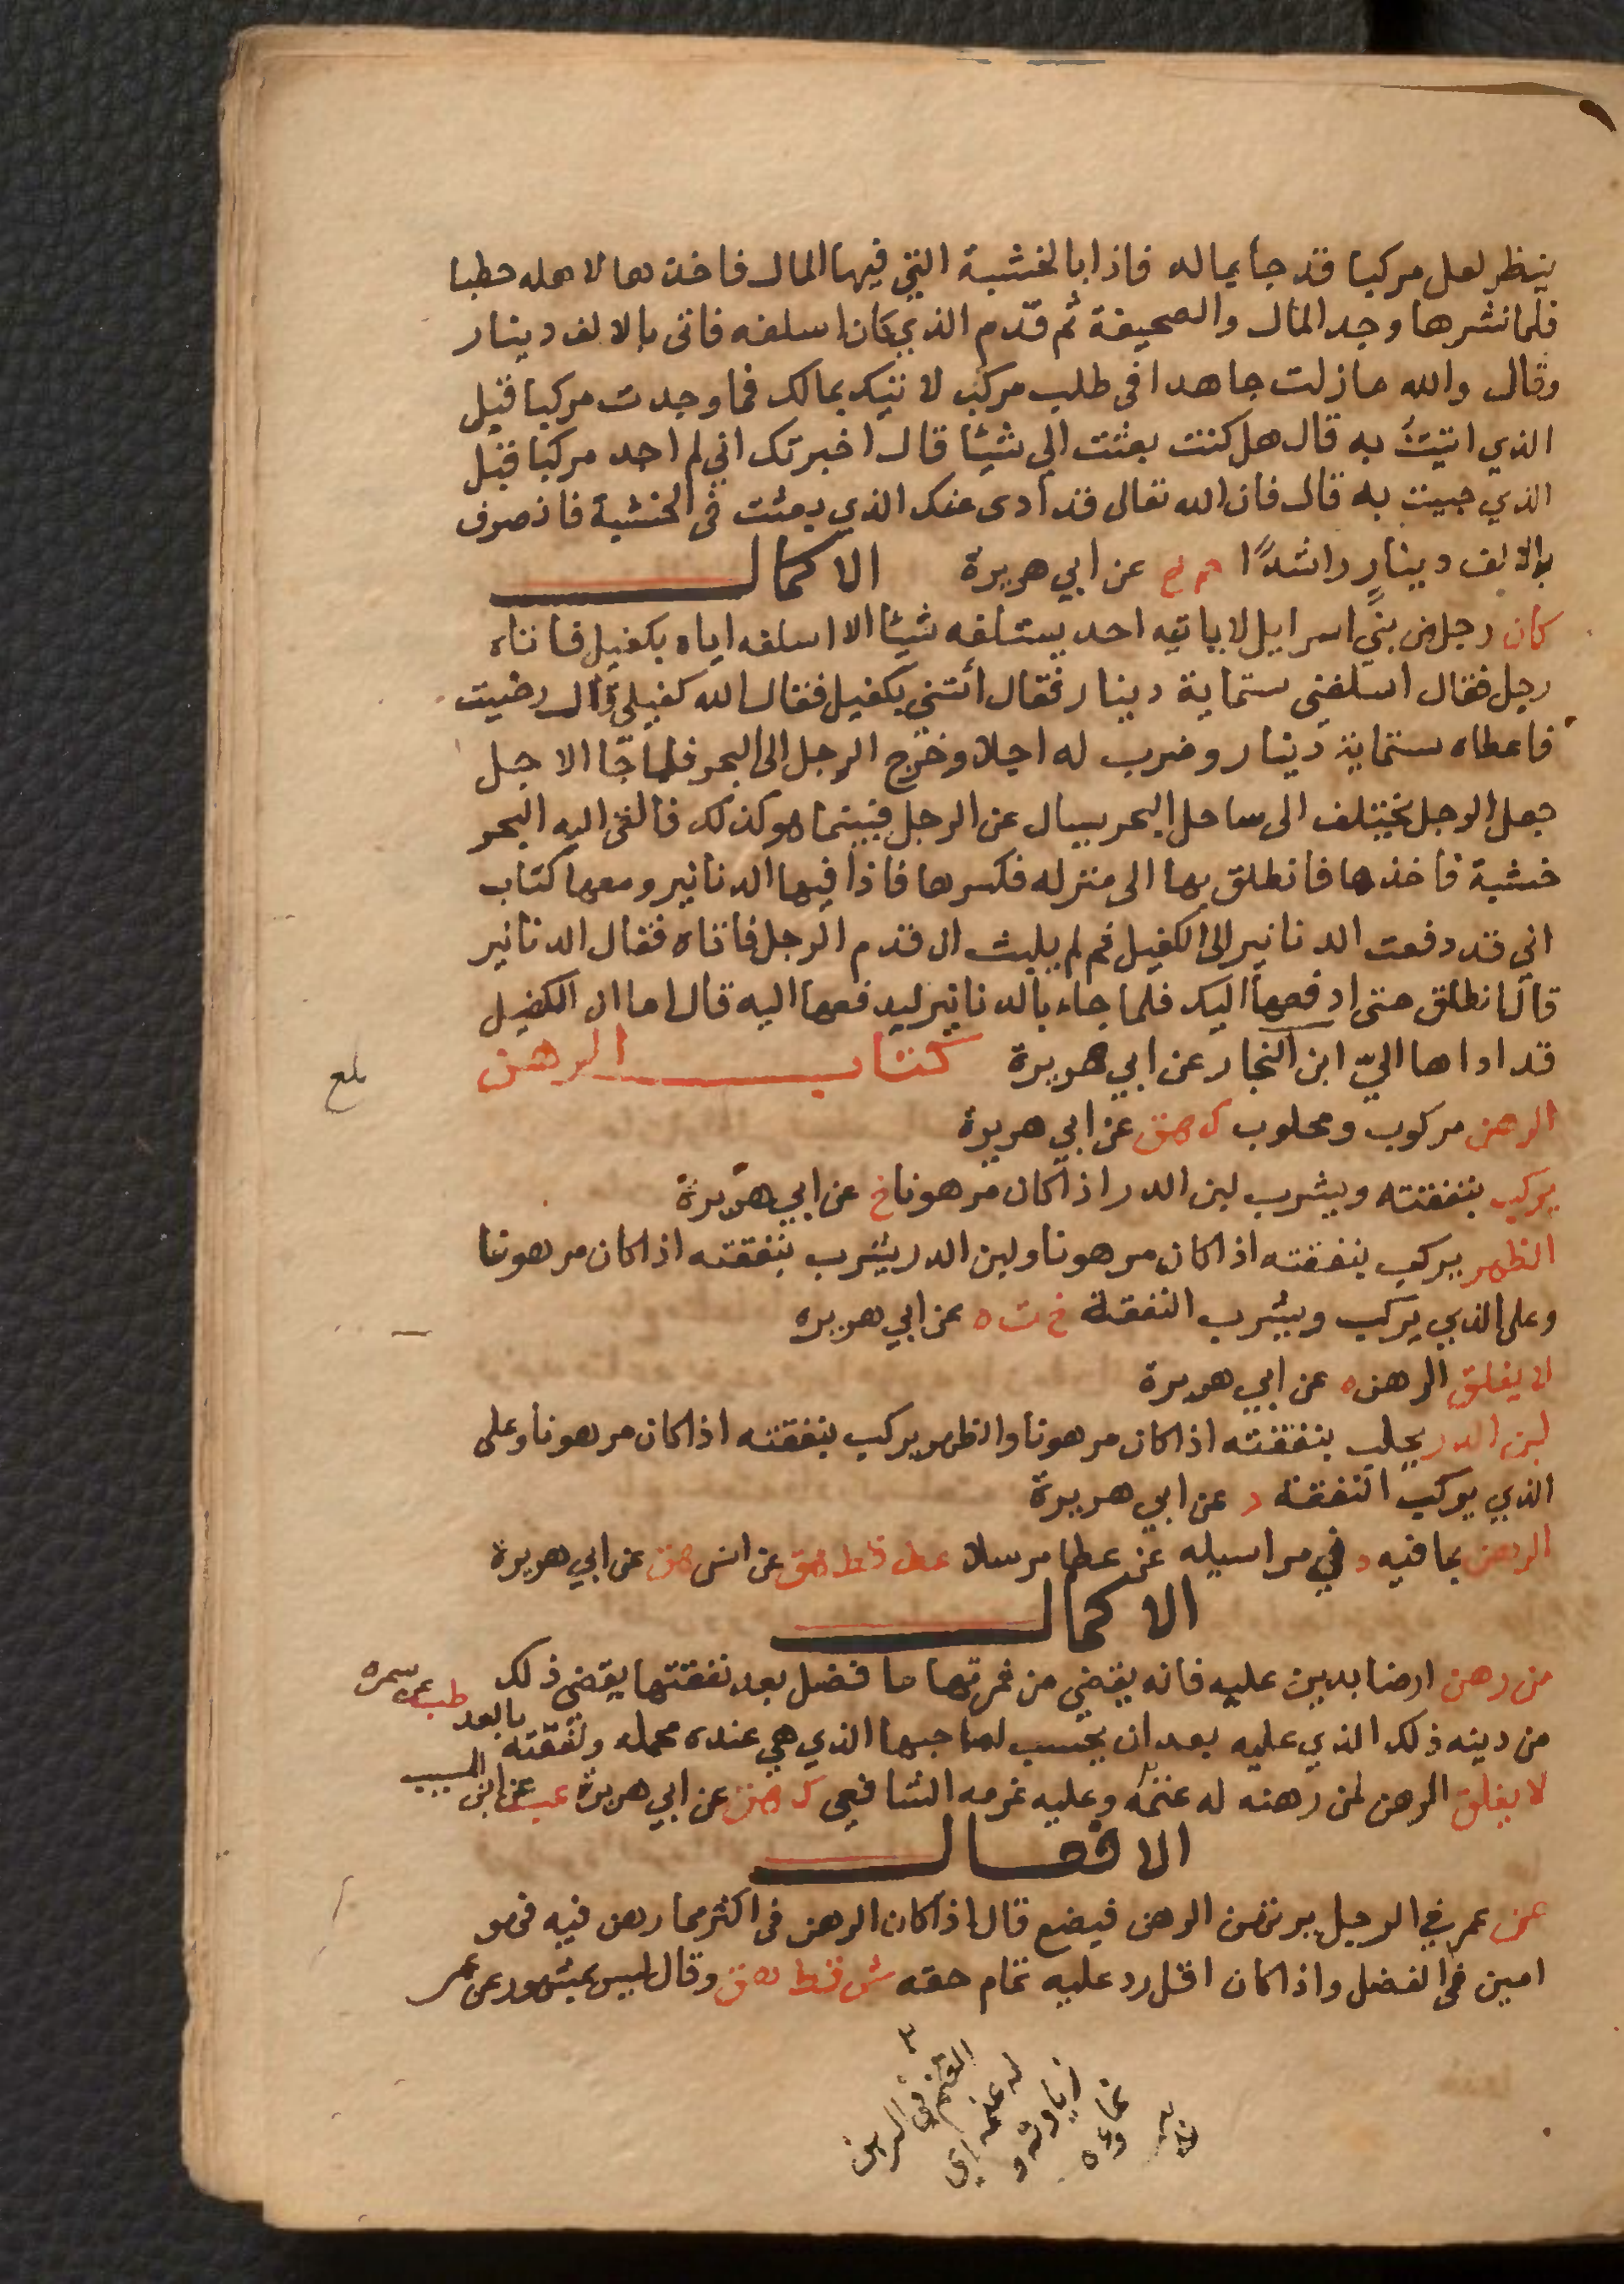 ينظر لعل مركبا قد جأ بماله فاذا بالخشبة التي فيها المال فاخذها لاهله حطبا
فلما نشرها وجد المال والصحيفة ثم قدم الذي كان اسلفه فاتى بالالف دينار
وقال والله ما زلت جاهدا فى طلب مركب لاتيك بمالك فما وجدت مركبا قبل
الذي اتيتُ به قال هل كنت بعثت الي شيئا قال اخبرتك اني لم اجد مركبا قبل
الذي جيت به قال فان الله تعالى قد ادى عنك الذي بعثت فى الخشبة فانصرف
بالالف دينارٍ راشدًا حم خ عن ابي هريرة الاكمال
كان رجل من بني اسرايل لا ياتيه احد يستلفه شيئا الا اسلفه اياه بكفيل فاتاه
رجل فقال اسلفني ستماية دينار فقال ائتني بكفيل فقال الله كفيلي قال رضيت
فاعطاه ستماية دينار وضرب له اجلا وخرج الرجل الى البحر فلما جآ الاجل
جعل الرجل يختلف الى ساحل البحر يسال عن الرجل فبينما هو كذلك فالقى اليه البحر
خشبة فاخذها فانطلق بها الى منزله فكسرها فاذا فيها الدنانير ومعها كتاب
اني قد دفعت الدنانير الى الكفيل ثم لم يلبث ان قدم الرجل فاتاه فقال الدنانير
قال انطلق حتى ادفعها اليك فلما جاء بالدنانير ليدفعها اليه قال اما ان الكفيل
قد اداها اليّ ابن النجار عن ابي هريرة كتاب الرهن
بلغ
الرهن مركوب ومحلوب ك هق عن ابي هريرة
يركب بنفقته ويشرب لبن الدر اذا كان مرهونا خ عن ابي هريرة
الظهر يركب بنفقته اذا كان مرهونا ولبن الدر يشرب بنفقته اذا كان مرهونا
وعلى الذي يركب ويشرب النفقة خ ت ه عن ابي هريره
لا يغلق الرهن ه عن ابي هريرة
لبن الدر يحلب بنفقته اذا كان مرهونا والظهر يركب بنفقته اذا كان مرهونا وعلى
الذي يركب النفقة د عن ابي هريرة
الرهن بما فيه د في مراسيله عن عطا مرسلا عد قط هق عن انس هق عن ابي هريرة
الاكمال
من رهن ارضا بدين عليه فانه يقضي من ثمرتها ما فضل بعد نفقتها يقضى ذلك
من دينه ذلك الذي عليه بعد ان يحسب لصاحبها الذي هي عنده عمله ونفقته بالعدل طب عن سمرة
لا يغلق الرهن لمن رهنه له غنمه وعليه غرمه الشافعي ك هق عن ابي هريرة عب عن ابن المسيب
الافعال
عن عمر في الرجل يرتهن الرهن فيضع قال اذا كان الرهن فى اكثر مما رهن فيه فهو
امين فى الفضل واذا كان اقل رد عليه تمام حقه ش قط هق وقال ليس بمشهور عن عمر
الغنم في الرهن
له غنمه اي
زيادته و
نماوه
نهاية